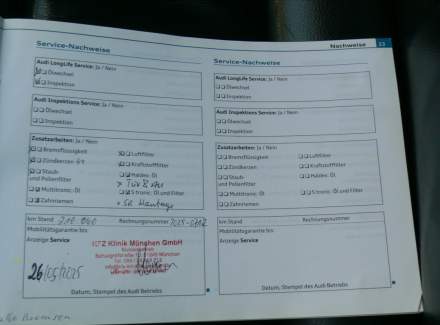 Service-Nachweise
Audi LongLife Service: Ja / Nein
Ölwechsel
Inspektion
Audi Inspektions Service: Ja / Nein
Ölwechsel
Inspektion
Zusatzarbeiten: Ja / Nein
Bremsflüssigkeit
Luftfilter
Zündkerzen
Kraftstofffilter
Staub-
und Pollenfilter
Haldex: Öl
Multitronic: Öl
S tronic: Öl und Filter
Zahnriemen
km Stand
Rechnungsnummer
Mobilitätsgarantie bis
Anzeige Service
KFZ Klinik München GmbH
26/05/2025
Datum, Stempel des Audi Betriebs
Nachweise 23
Service-Nachweise
Audi LongLife Service: Ja / Nein
Ölwechsel
Inspektion
Audi Inspektions Service: Ja / Nein
Ölwechsel
Inspektion
Zusatzarbeiten: Ja / Nein
Bremsflüssigkeit
Luftfilter
Zündkerzen
Kraftstofffilter
Staub-
und Pollenfilter
Haldex: Öl
Multitronic: Öl
S tronic: Öl und Filter
Zahnriemen
km Stand
Rechnungsnummer
Mobilitätsgarantie bis
Anzeige Service
Datum, Stempel des Audi Betriebs